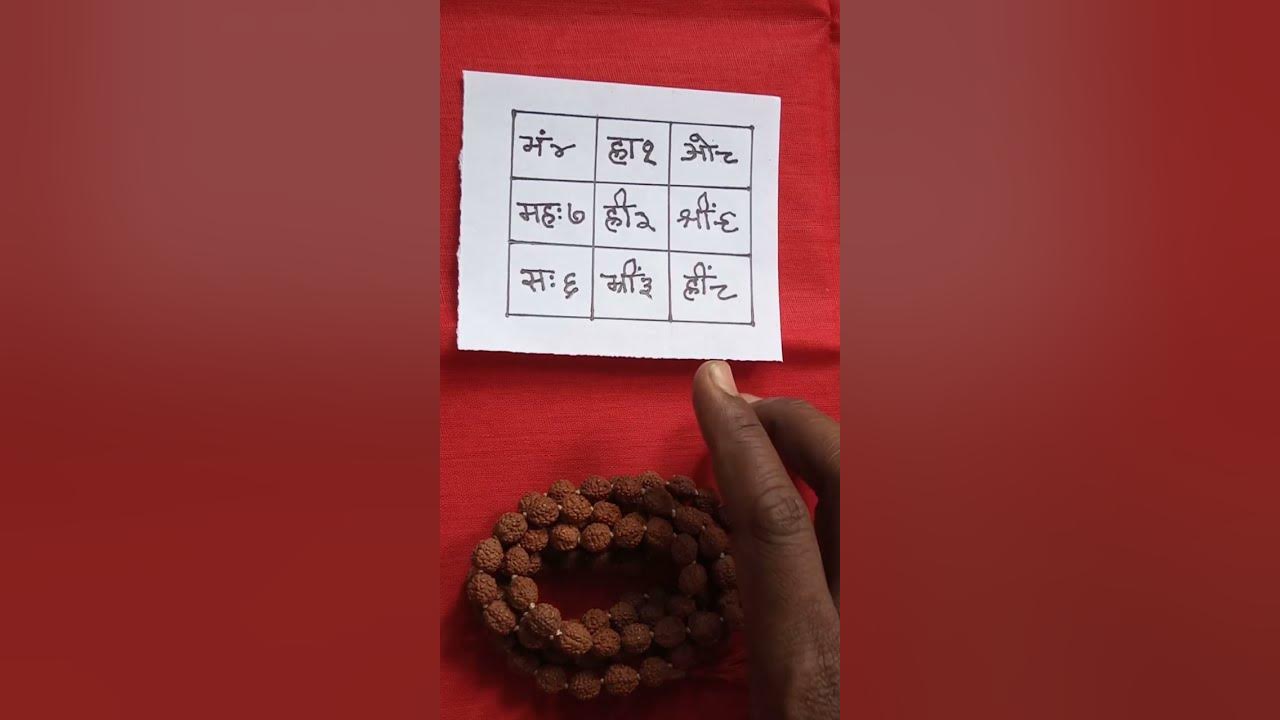 मं४ ह्ना१ ओ८
महः७ ह्नी२ श्रीं६
सः६ म्रीं३ ह्नीं८